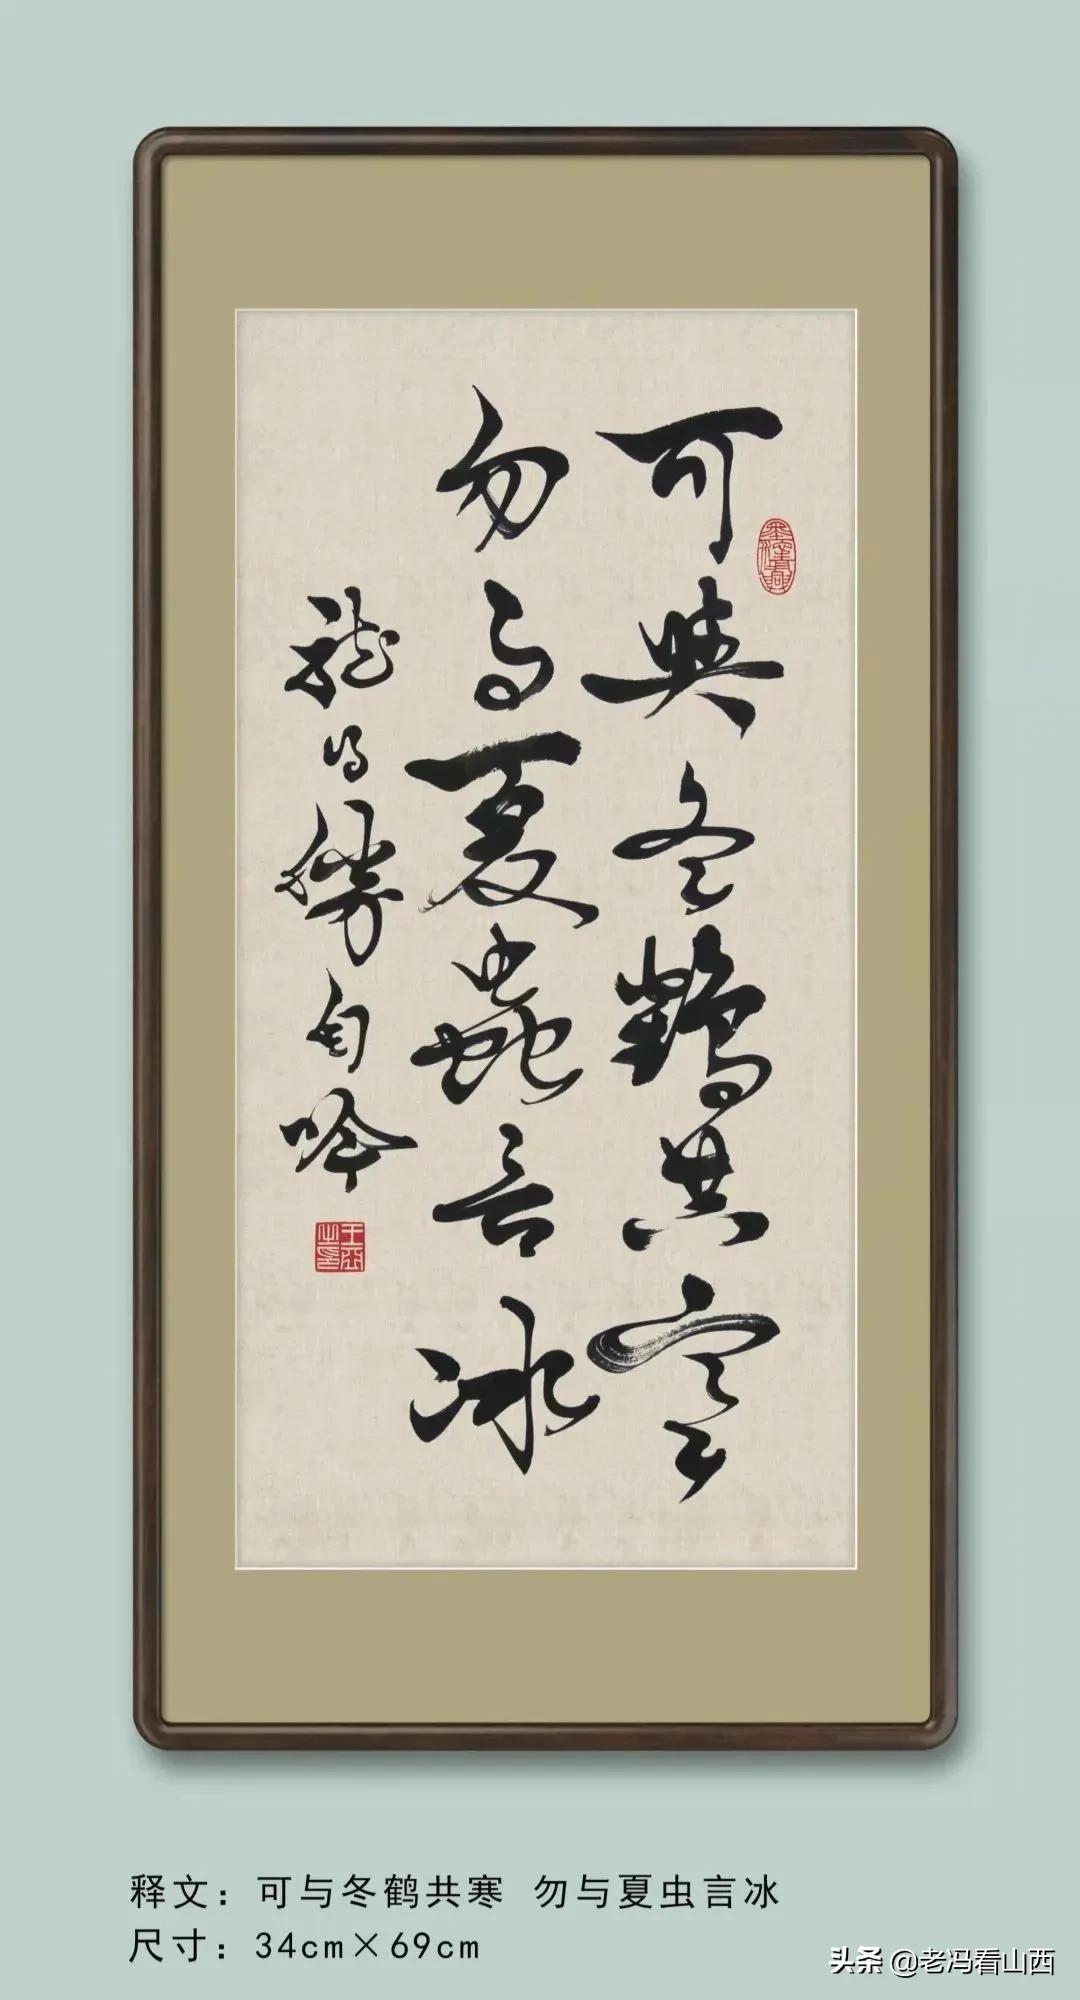 可與冬鶴共寒
勿与夏蟲言冰
龍馬勝自吟
释文：可与冬鹤共寒 勿与夏虫言冰
尺寸：34cm×69cm
头条 @老冯看山西